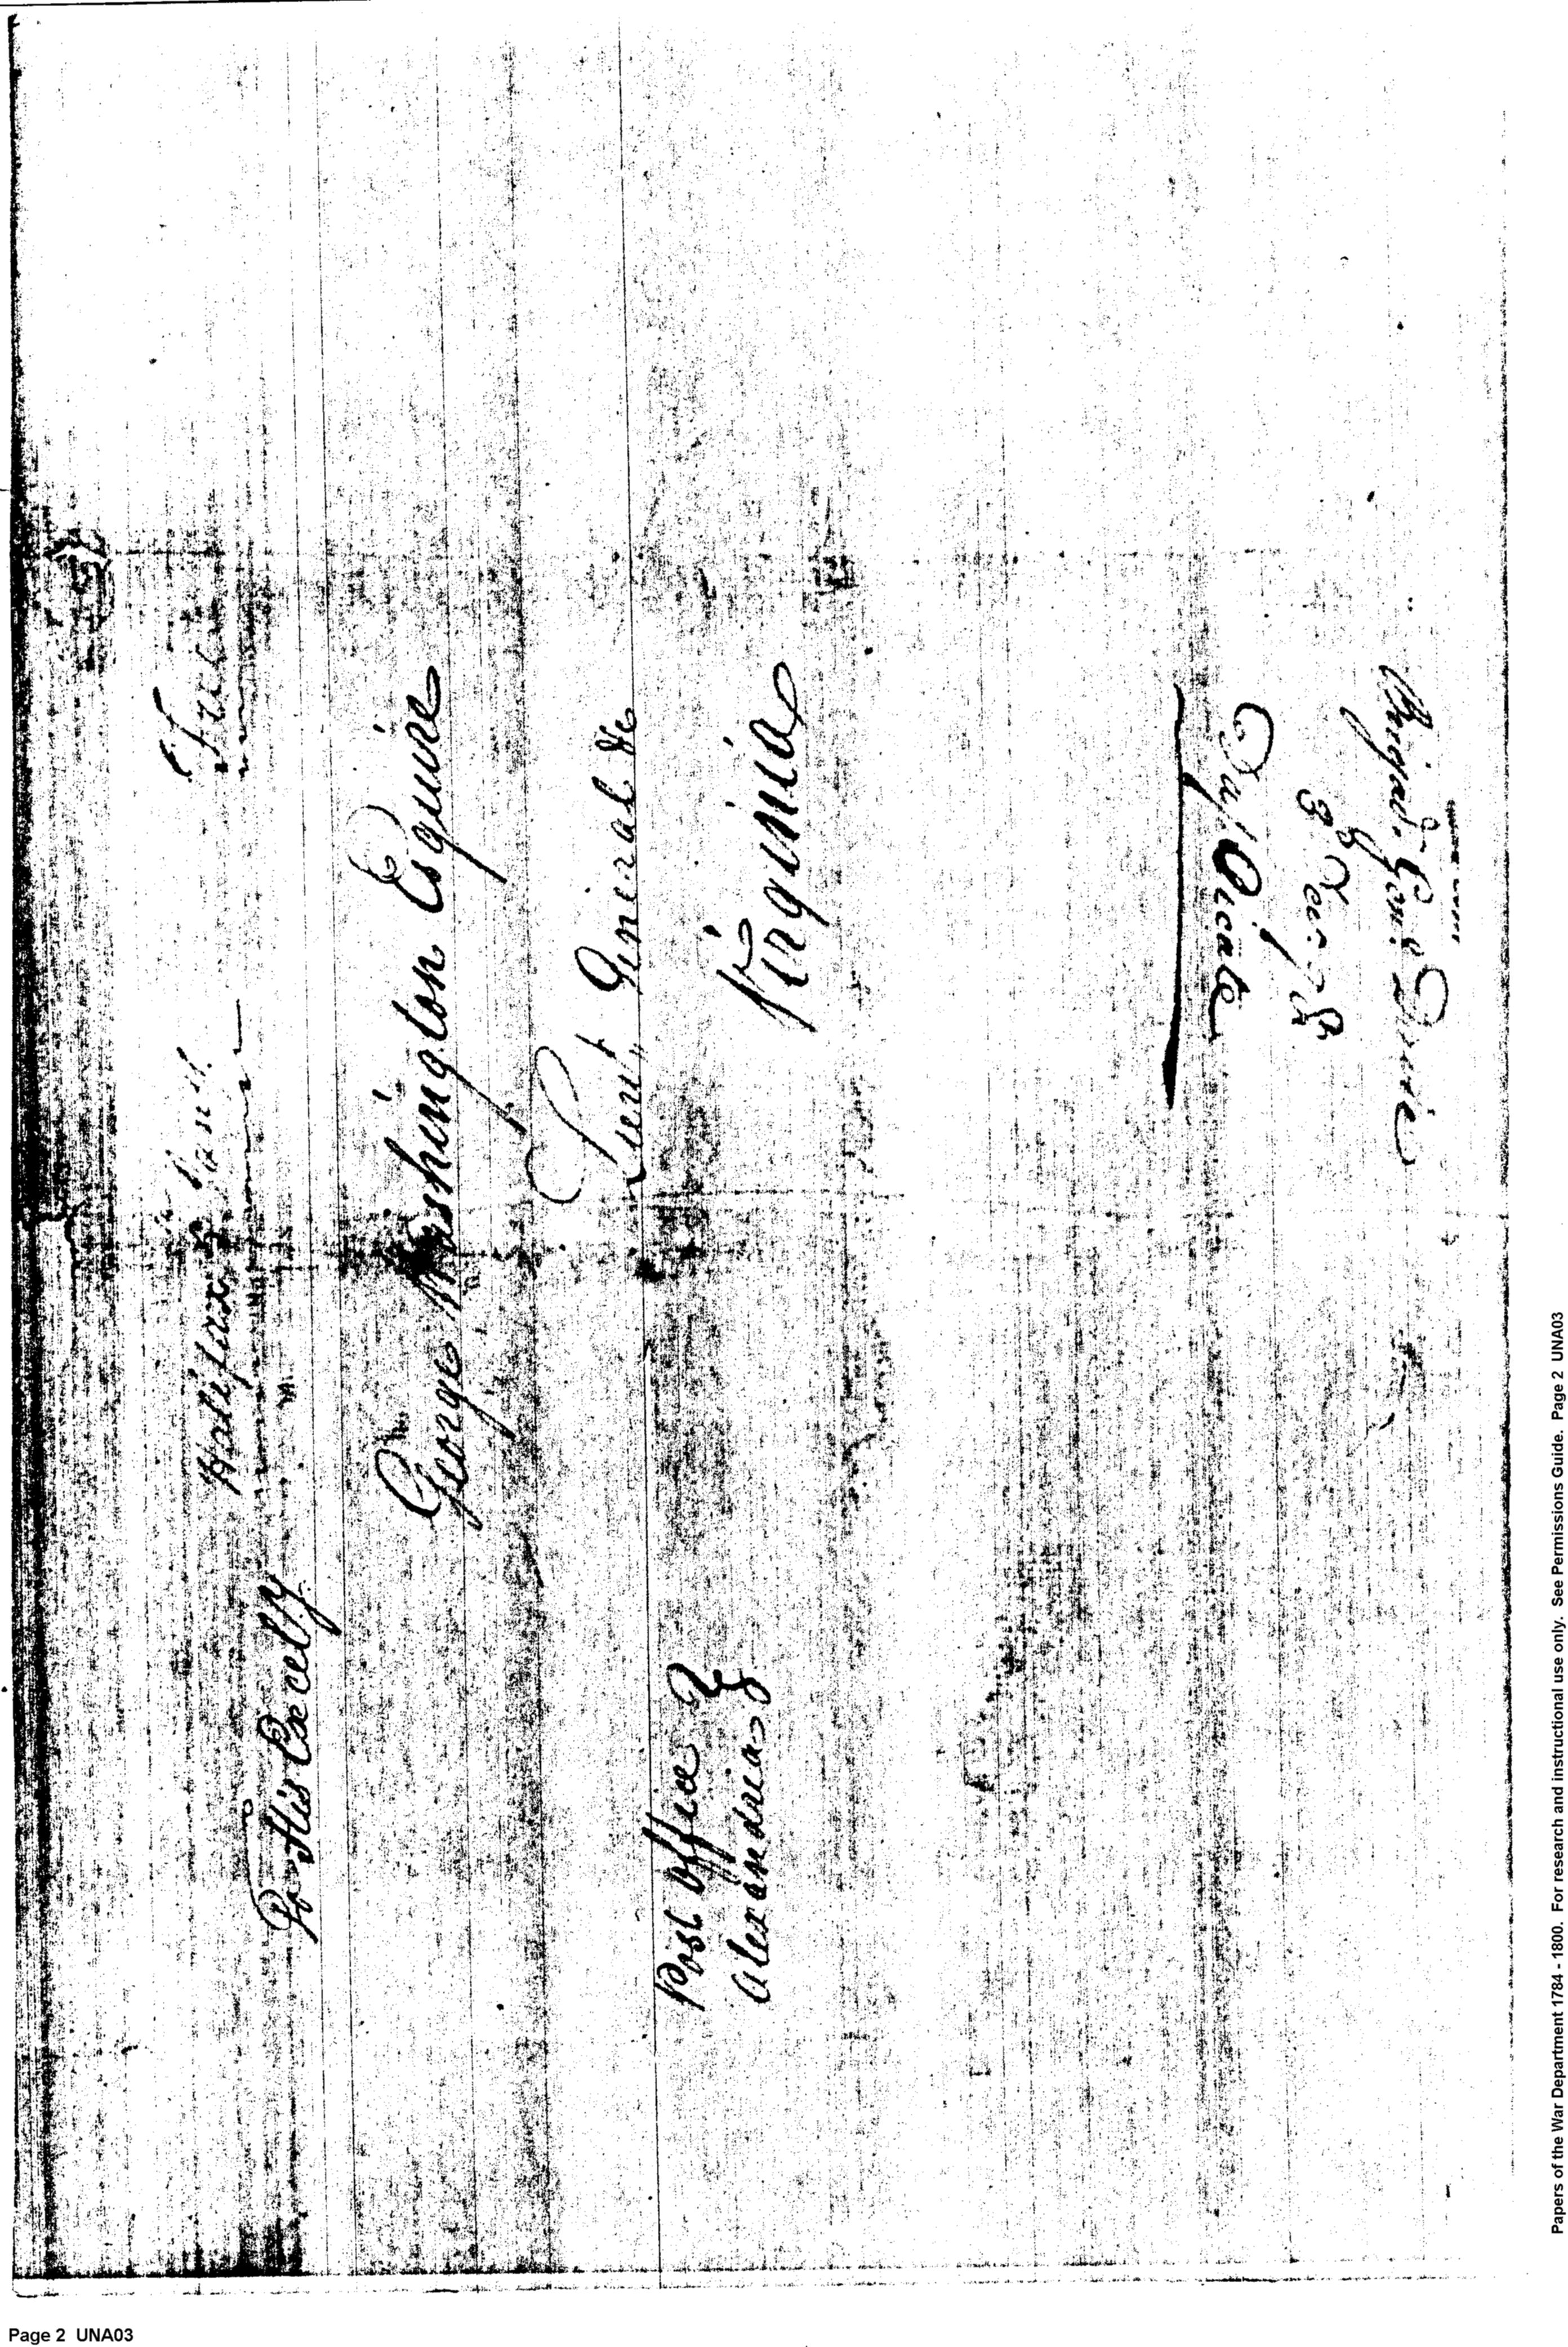 Free
Halifax
His Excelly
George Washington Esquire
Lieut, General &c
Virginia
Post Office
Alexandria
Duplicate
Brigad. Genl. Davie
Papers of the War Department 1784 - 1800. For research and instructional use only. See Permissions Guide. Page 2 UNA03
Page 2 UNA03